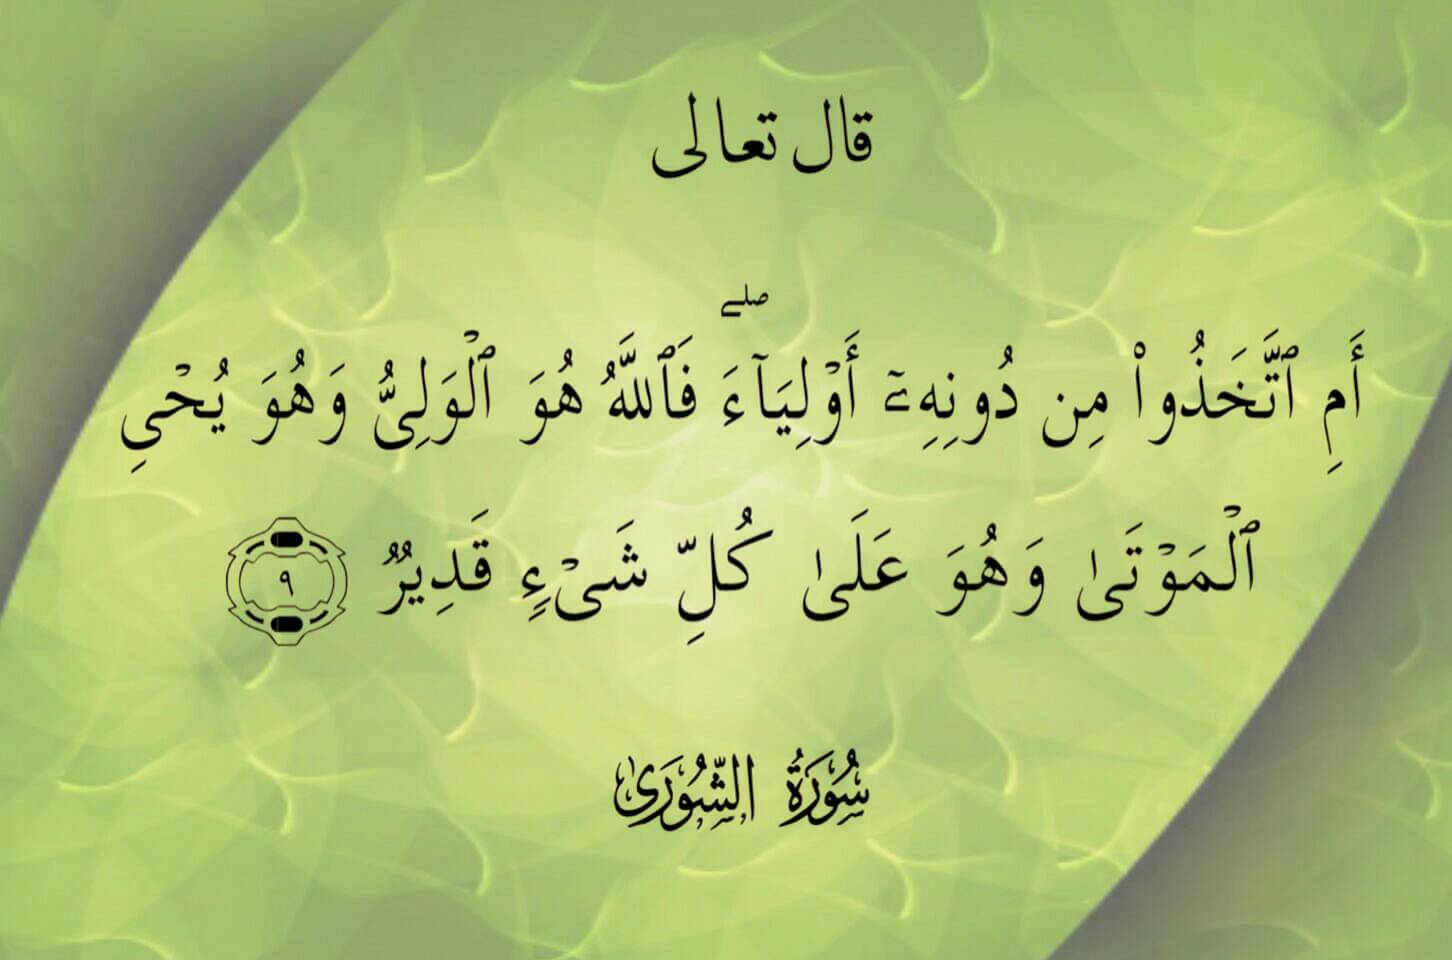 قال تعالى
أَمِ ٱتَّخَذُوا۟ مِن دُونِهِۦٓ أَوْلِيَآءَ ۖ فَٱللَّهُ هُوَ ٱلْوَلِىُّ وَهُوَ يُحْىِ
ٱلْمَوْتَىٰ وَهُوَ عَلَىٰ كُلِّ شَىْءٍ قَدِيرٌ ٩
سُورَةُ الشُّورَىٰ